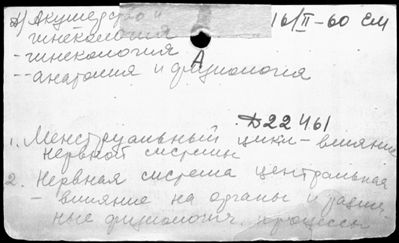 Акушерство и 16/II-60 ЕМ
гинекология
- гинекология А
-- анатомия и физиология
Д22461
1. Менструальный цикл - влияние
нервной системы
2. Нервная система центральная
- влияние на органы и
физиологич. процессы